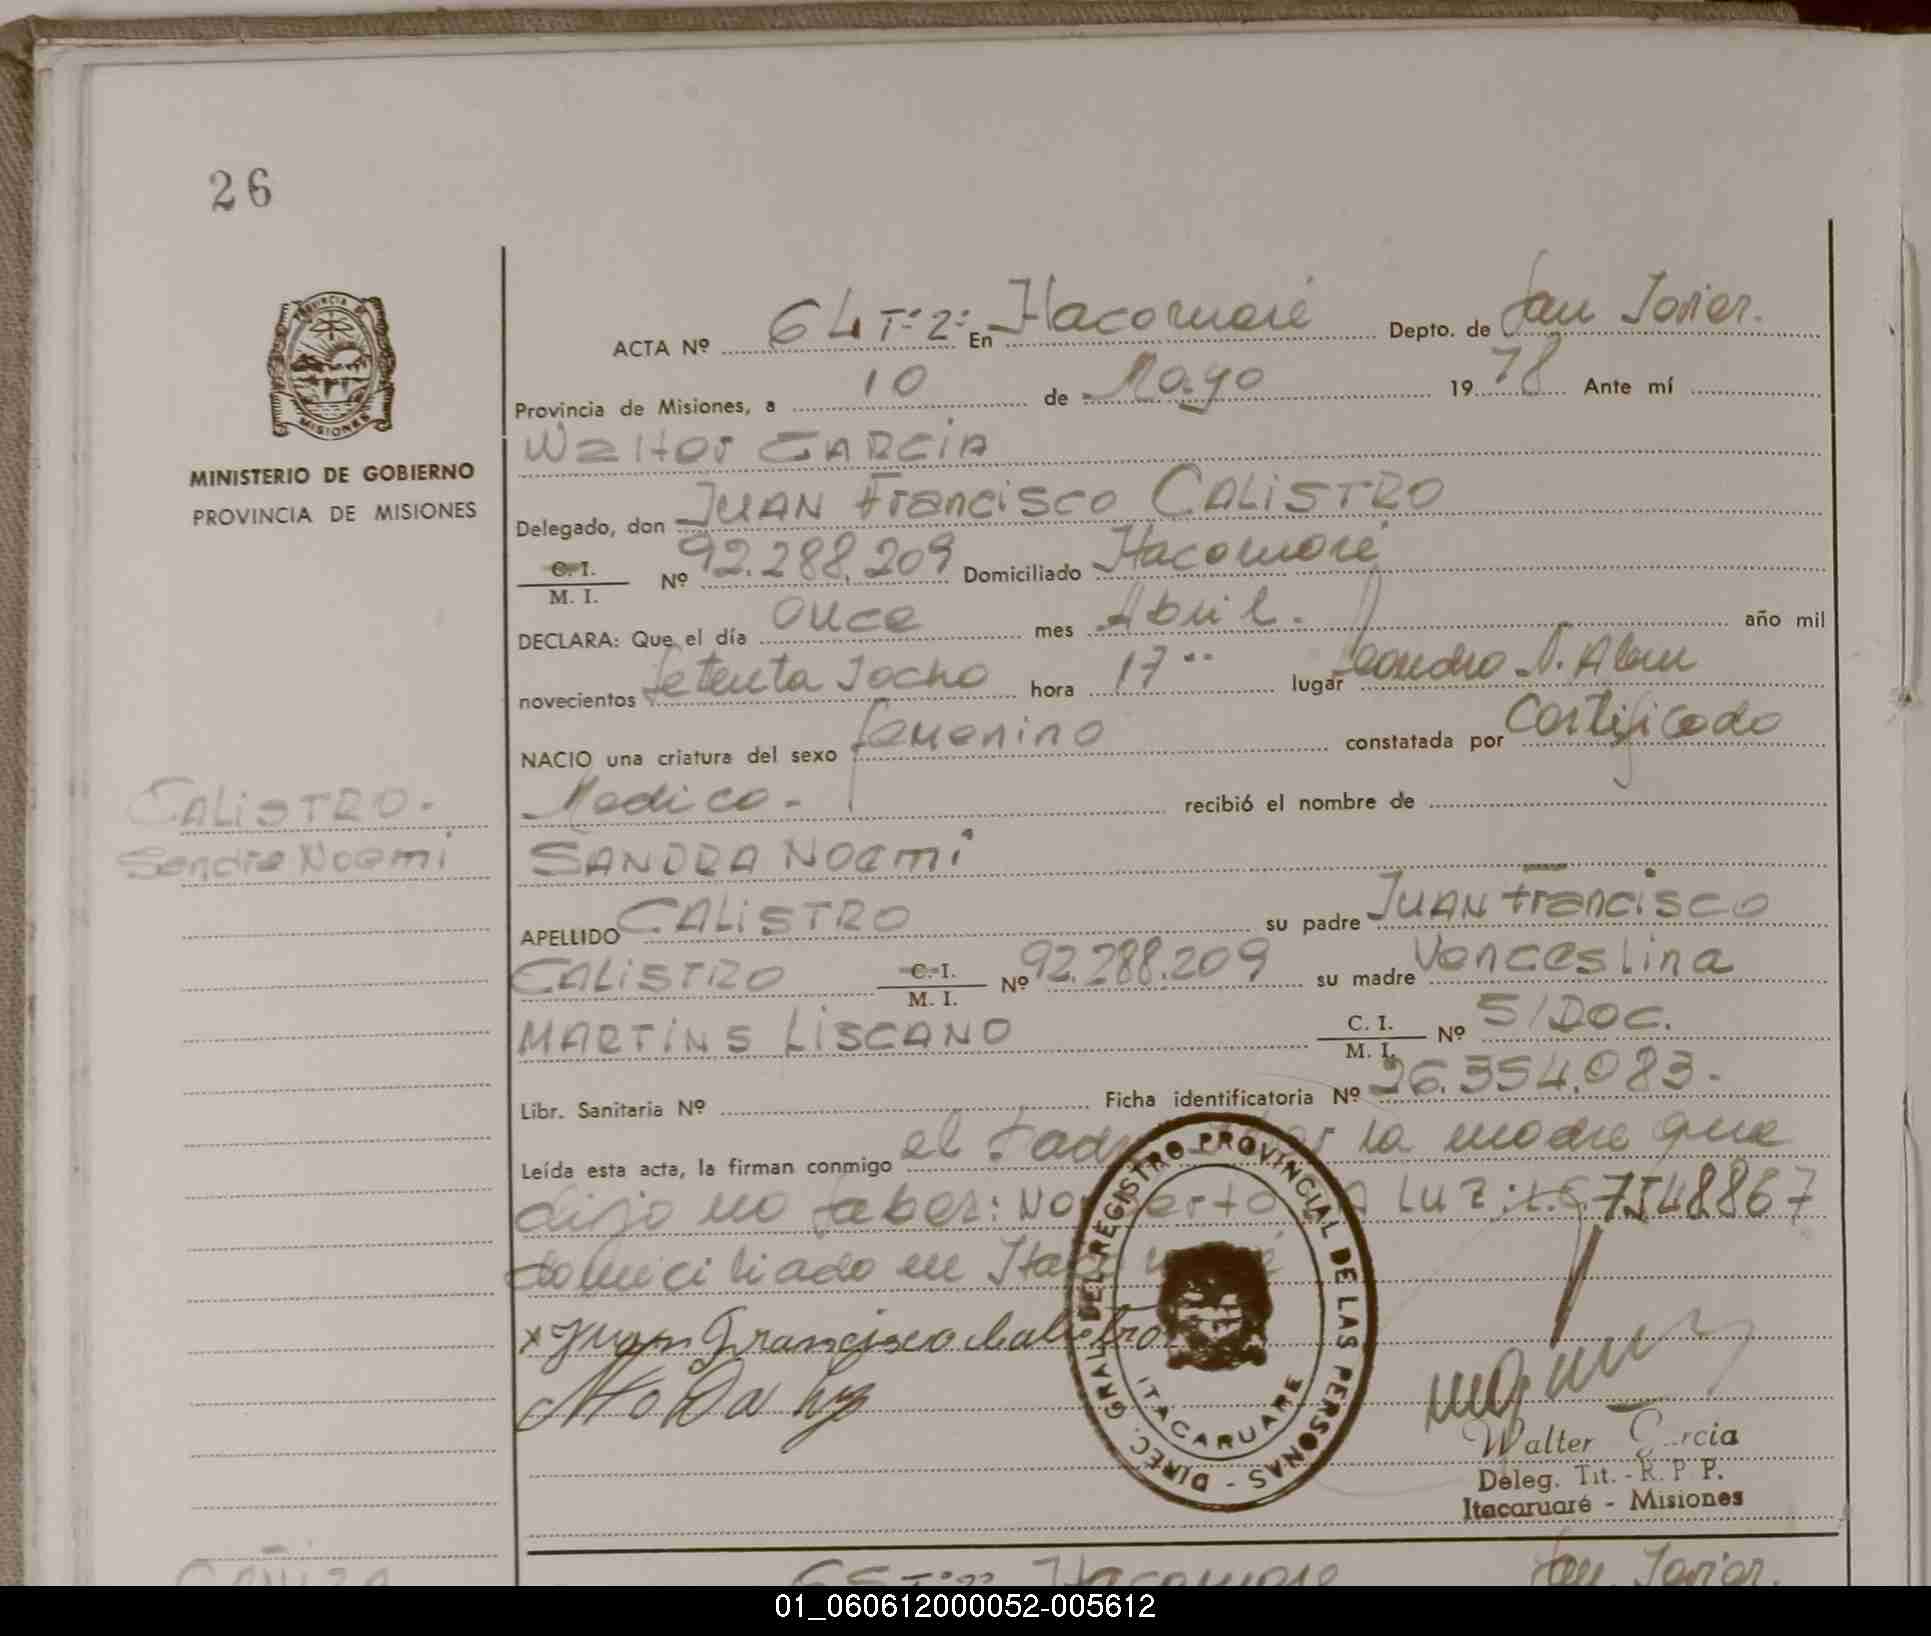 26
PROVINCIA DE
MISIONES
MINISTERIO DE GOBIERNO
PROVINCIA DE MISIONES
ACTA Nº 64 Tº 2º En Itacaruaré Depto. de San Javier.
Provincia de Misiones, a 10 de Mayo 19 78 Ante mí
Walter GARCIA
Delegado, don JUAN Francisco CALISTRO
C. I. / M. I. Nº 92.288.209 Domiciliado Itacaruaré
DECLARA: Que el día Once mes Abril. año mil
novecientos setenta y ocho hora 17 lugar Leandro N. Alem
NACIO una criatura del sexo femenino constatada por Certificado
Medico. recibió el nombre de
CALISTRO.
Sandra Noemi
SANDRA Noemi
APELLIDO CALISTRO su padre JUAN Francisco
CALISTRO C. I. / M. I. Nº 92.288.209 su madre Venceslina
MARTINS LISCANO C. I. / M. I. Nº S/Doc.
Libr. Sanitaria Nº Ficha identificatoria Nº 26.354.083.
Leída esta acta, la firman conmigo el Padre Por la madre que
dijo no saber: Norberto DA LUZ: 7.548.867
domiciliado en Itacaruaré
x Juan Francisco Calistro
No Da Luz
DIREC. GRAL. DEL REGISTRO PROVINCIAL DE LAS PERSONAS -
ITACARUARE
Walter Garcia
Deleg. Tit. - R. P. P.
Itacaruaré - Misiones
Itacaruaré San Javier.
01_060612000052-005612